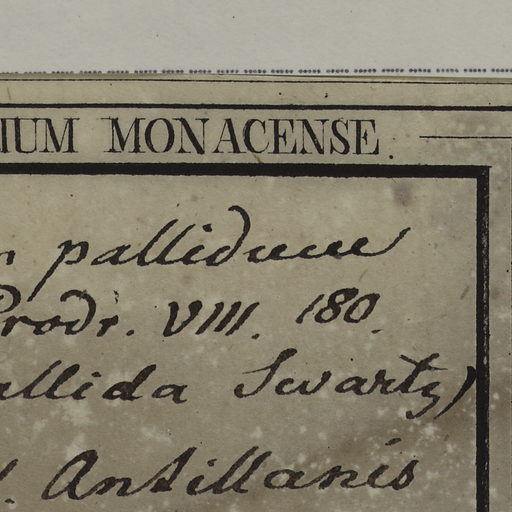 IUM MONACENSE.
pallidum
Prodr. VIII. 180.
allida Swartz)
Antillanis